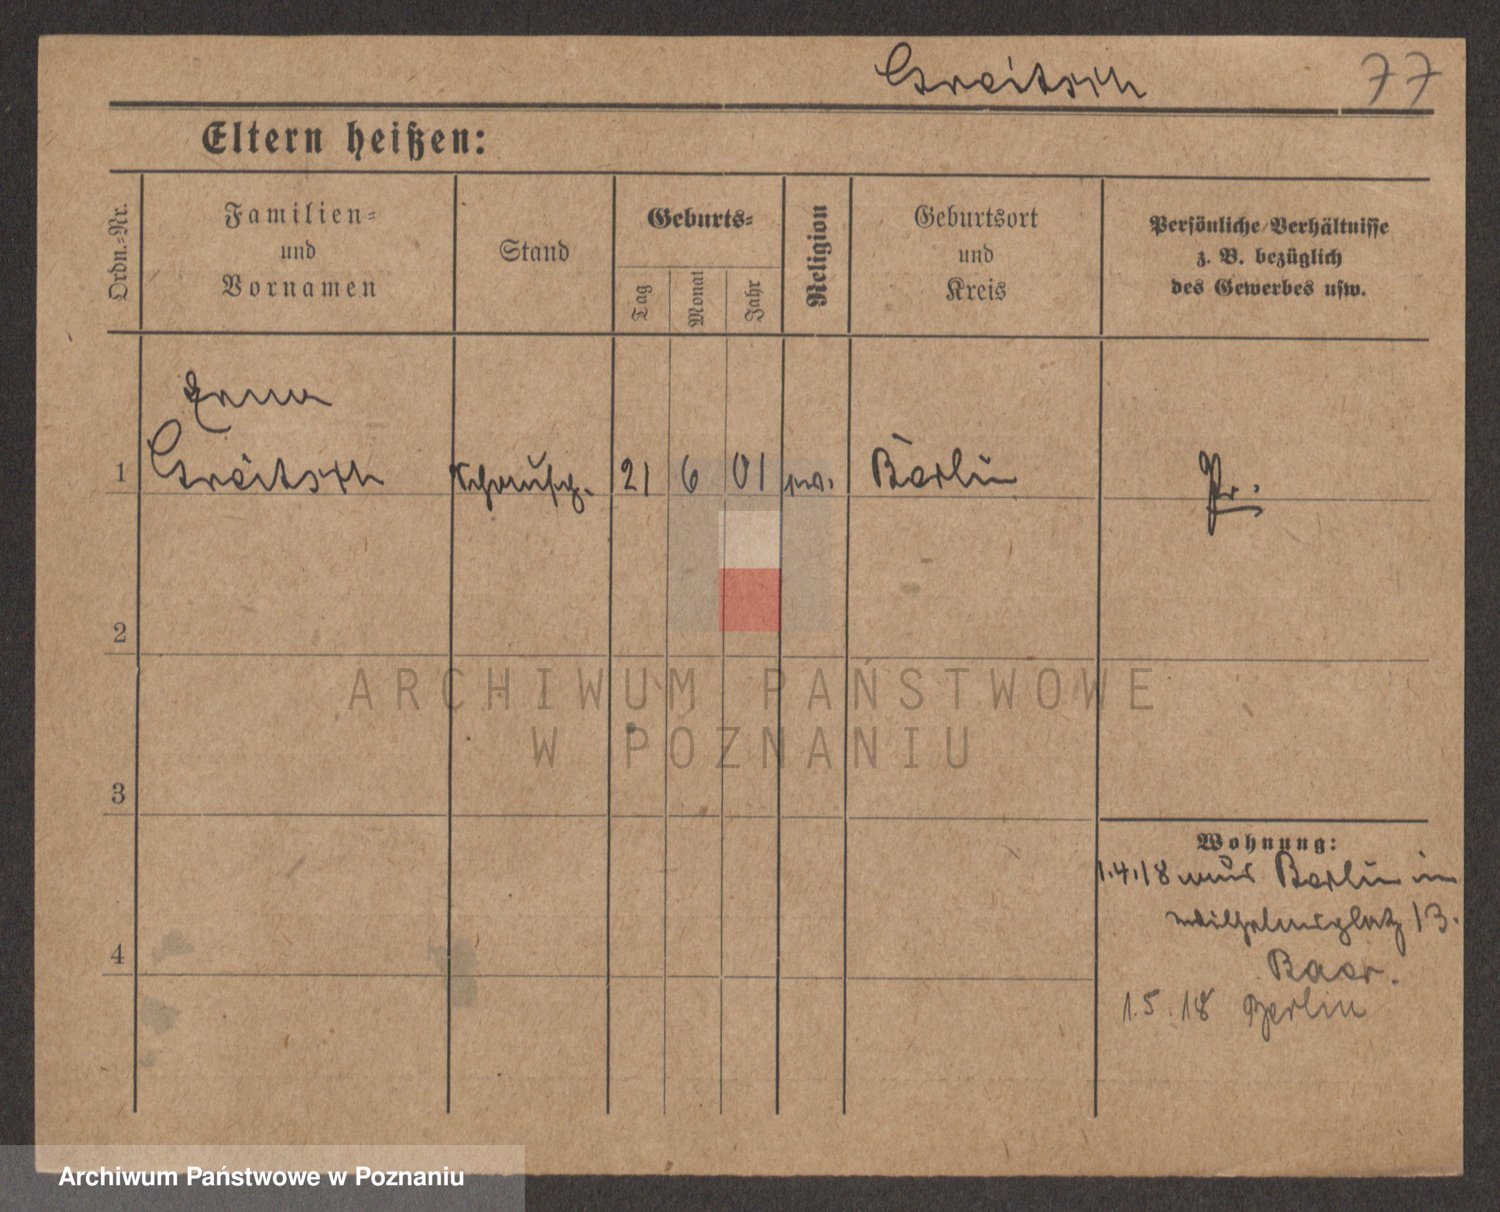 Greitsch 77
Eltern heißen:
Ordn.=Nr.
Familien=
und
Vornamen
Stand
Geburts=
Tag
Monat
Jahr
Religion
Geburtsort
und
Kreis
Persönliche Verhältnisse
z. B. bezüglich
des Gewerbes usw.
Erna
1 Greitsch Schausp. 21 6 01 ev. Berlin Pr.
2
ARCHIWUM PAŃSTWOWE
W POZNANIU
3
Wohnung:
1.4.18 aus Berlin in
Wilhelmsplatz 13.
4
Baer.
1.5.18 Berlin
Archiwum Państwowe w Poznaniu